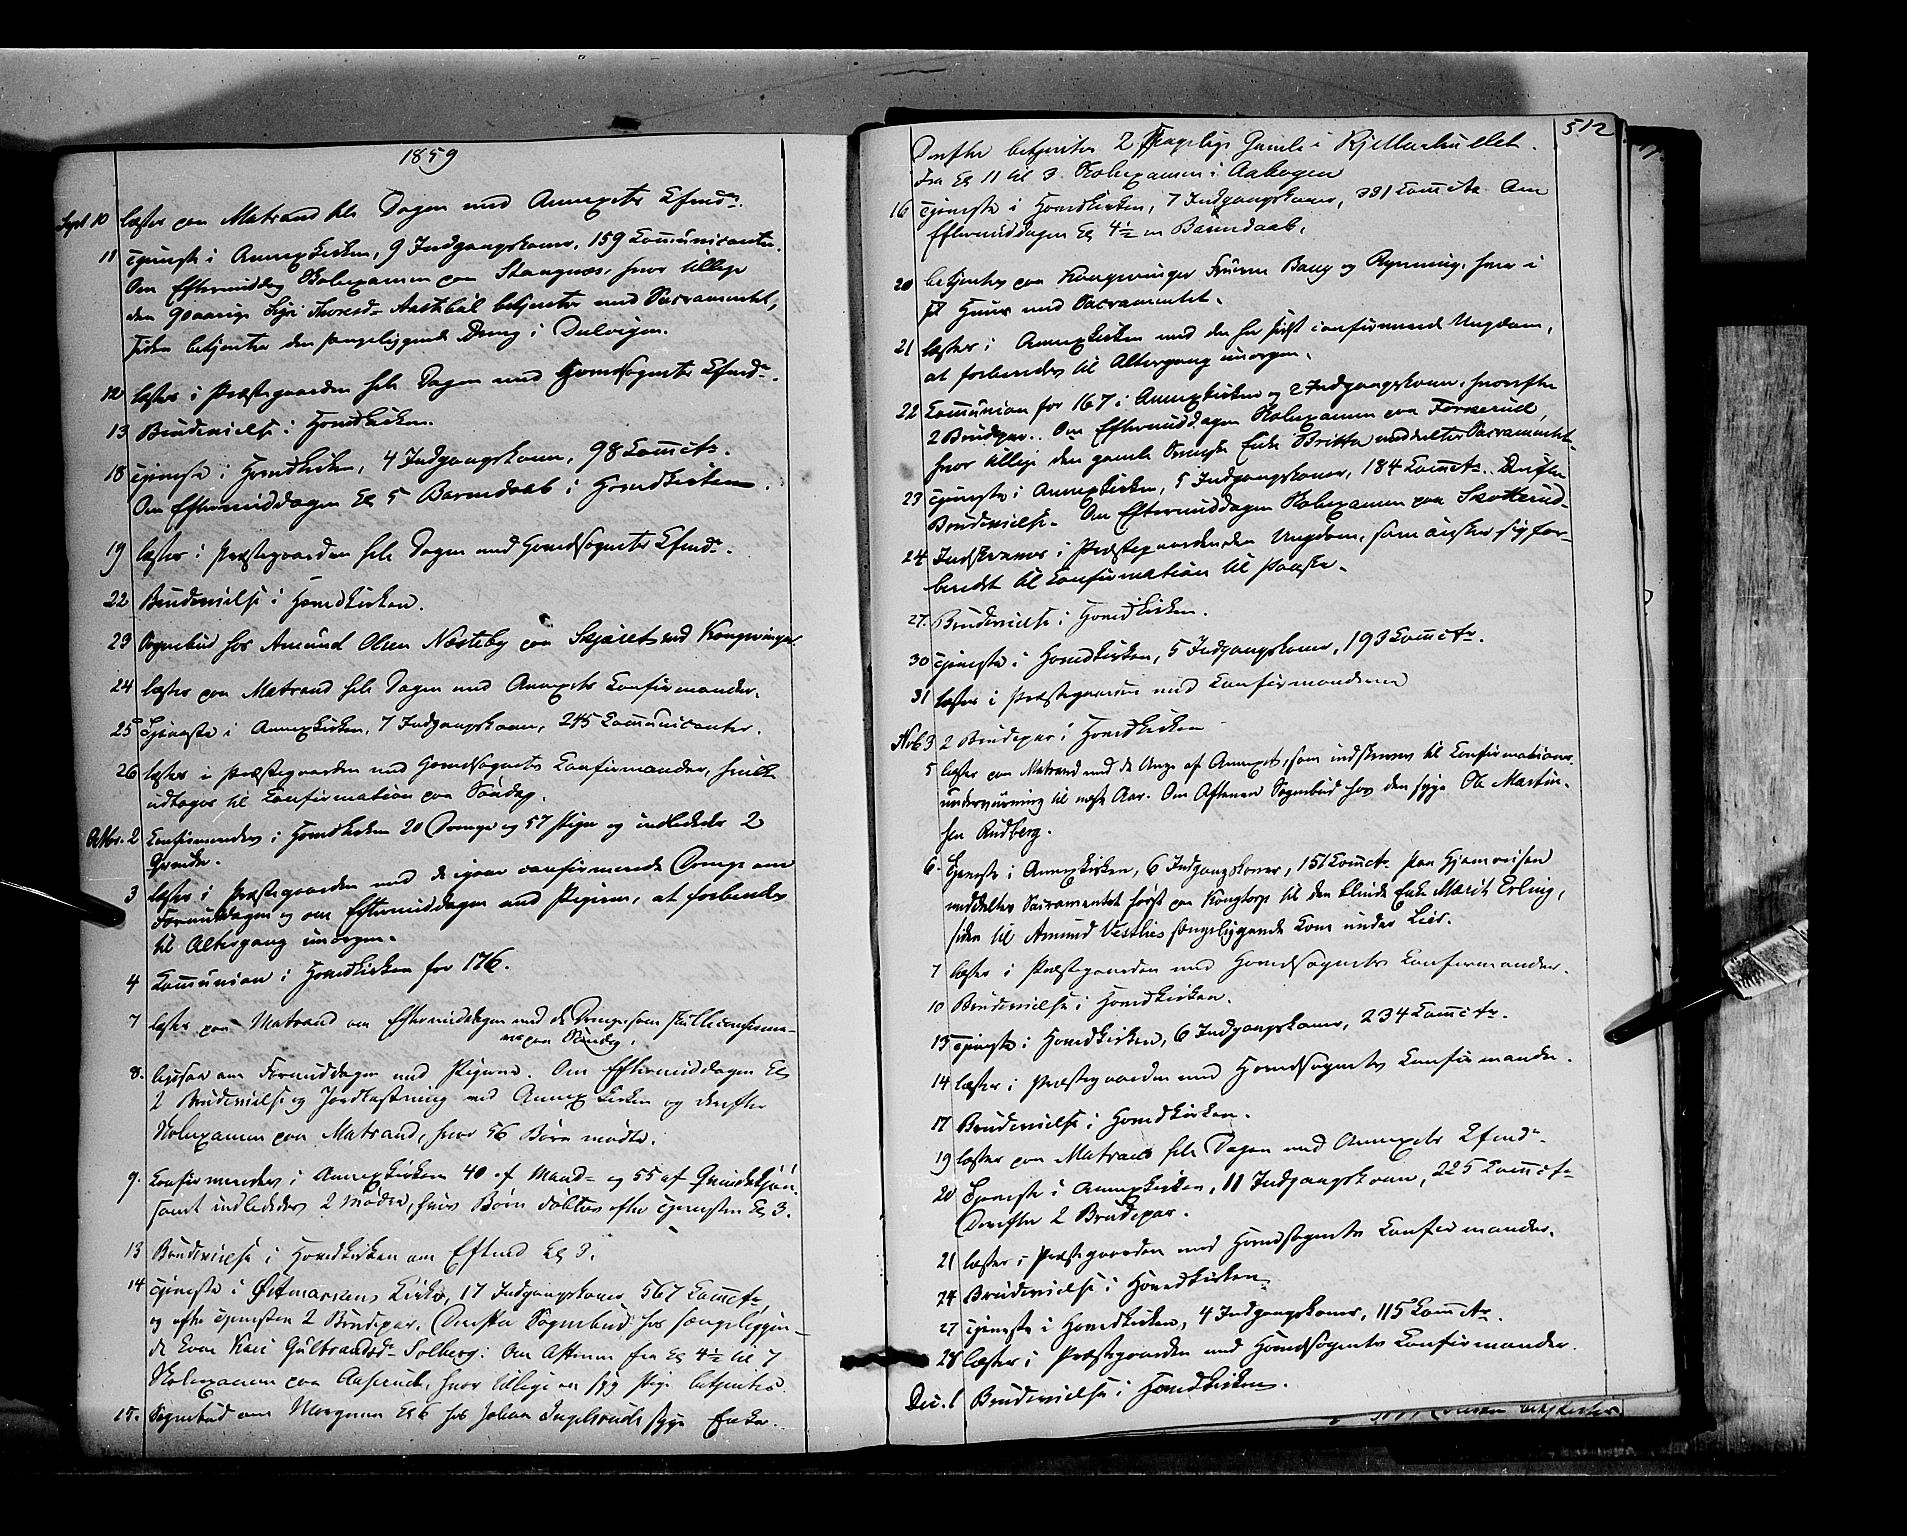 1859
Sept 10 læster paa Matrand hele Dagen med Annexets Cfmdr.
11 Tjeneste i Annexkirken, 9 Indgangskoner, 159 Communicanter.
Om Eftermiddag Skolexamen paa Stangnæs, hvor tillige
den 90aarige Thoresd. Aastebøl betjentes med Sacramentet,
siden betjentes den sengeliggende Dreng i
12 læster i Præstegaarden hele Dagen med Hovedsognets Cfmdr.
13 Brudevielse i Hovedkirken.
18 Tjeneste i Hovedkirken, 4 Indgangskoner, 98 Commctr.
Om Eftermiddagen Kl 5 Barnedaab i Hovedkirken.
19 læster i Præstegaarden hele Dagen med Hovedsognets Cfmdr.
22 Brudevielse i Hovedkirken.
23 Sognebud hos Amund Olsen Næsteby paa Skjæret ved Kongsvinger.
24 læster paa Matrand hele Dagen med Annexets Confirmander.
25 Tjeneste i Annexkirken, 7 Indgangskoner, 245 Communicanter.
26 læster i Præstegaarden med Hovedsognets Confirmander, hvilke
udtages til Confirmation paa Søndag.
Octbr. 2 Confirmeredes i Hovedkirken 20 Drenge og 57 Piger og indlededes 2
Qvinder.
3 læster i Præstegaarden med de igaar confirmerede Drenge om
Formiddagen og om Eftermiddagen med Pigerne, at forberedes
til Altergang imorgen.
4 Communion i Hovedkirken for 176.
7 læster paa Matrand om Eftermiddagen med de Drenge som skulle confirme-
res paa Søndag.
8. ligesaa om Formiddagen med Pigerne. Om Eftermiddagen Kl
2 Brudevielse og Jordfæstning ved Annexkirken og derefter
Skolexamen paa Matrand, hvor 56 Børn mødte.
9. Confirmeredes i Annexkirken 40 af Mand- og 55 af Qvindekjøn,
samt indlededes 2 Mødre, hvis Børn døbtes efter Tjenesten Kl 3.
13 Brudevielse i Hovedkirken om Eftmd Kl 3.
14 Tjeneste i Østmarkens Kirke, 17 Indgangskoner, 567 Commctr,
og efter Tjenesten 2 Brudepar. Derefter Sognebud hos sengeliggen-
de Kone Kari Gulbrandsd. Solberg. Om Aftenen fra Kl 4½ til 7
Skolexamen paa hvor tillige en syg Pige betjentes.
15. Sognebud om Morgenen Kl 6 hos Johan Ingelsruds syge Enke.
512
Derefter betjentes 2 Gamle i Kjellerhullet.
Fra Kl 11 til 3 Skolexamen i Aabogen
16 Tjeneste i Hovedkirken, 7 Indgangskoner, 331 Commctr. Om
Eftermiddagen Kl 4½ en Barnedaab.
20 betjentes paa Kongsvinger Fruerne Bang og Rynning, hver i
sit Huus med Sacramentet.
21 læster i Annexkirken med den her sidst confirmerede Ungdom,
at forberedes til Altergang imorgen.
22 Communion for 167 i Annexkirken og 2 Indgangskoner, hvorefter
2 Brudepar. Om Eftermiddagen Skolexamen paa
hvor tillige den gamle Svenske Enke Britta meddeltes Sacramentet.
23 Tjeneste i Annexkirken, 5 Indgangskoner, 184 Commctr. Derefter
Brudevielse. Om Eftermiddagen Skolexamen paa Skotterud.
24 Indskreves i Præstegaarden den Ungdom, som ønsker sig for-
beredt til Confirmation til Paaske.
27. Brudevielse i Hovedkirken.
30 Tjeneste i Hovedkirken, 5 Indgangskoner, 193 Commctr.
31 læster i Præstegaarden med Confirmanderne
Nob 3 2 Brudepar i Hovedkirken
5 læster paa Matrand med de Unge af Annexet, som indskreves til Confirmations-
undervisning til næste Aar. Om Aftenen Sognebud hos den syge Ole Martin-
sen Rudberg.
6. Tjeneste i Annexkirken, 6 Indgangskoner, 151 Commctr. Paa Hjemveisen
meddeltes Sacramentet først paa Kongtorp til den blinde Enke Marit Erling,
siden til Amund Vestlies sengeliggende Kone under Lier.
7 læster i Præstegaarden med Hovedsognets Confirmander.
10 Brudevielse i Hovedkirken.
13 Tjeneste i Hovedkirken, 6 Indgangskoner, 234 Commctr.
14 læster i Præstegaarden med Hovedsognets Confirmander.
17 Brudevielse i Hovedkirken.
19 læster paa Matrand hele Dagen med Annexets Cfmdr.
20 Tjeneste i Annexkirken, 11 Indgangskoner, 225 Commctr
Derefter 2 Brudepar.
21 læster i Præstegaarden med Hovedsognets Confirmander.
24 Brudevielse i Hovedkirken.
27 Tjeneste i Hovedkirken, 4 Indgangskoner, 115 Commctr.
28 læster i Præstegaarden med Hovedsognets Confirmander.
Dec. 1 Brudevielse i Hovedkirken.